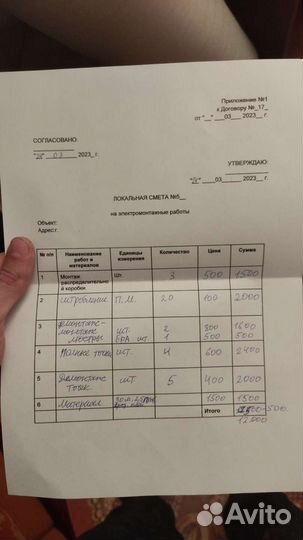 Приложение №1
к Договору №_17_
от "__" ___03___ 2023__ г.
СОГЛАСОВАНО:
03 2023_ г.
УТВЕРЖДАЮ:
____03______ 2023__ г.
ЛОКАЛЬНАЯ СМЕТА №5__
на электромонтажные работы
Объект:
Адрес:
№ п/п Наименование работ и материалов Единицы измерения Количество Цена Сумма
1 Монтаж распределительной коробки Шт. 3 500 1500
2 штробление П.М. 20 100 2000
3 демонтаж- шт. 2 800 1600
монтаж люстры БРА шт. 1 500 500
4 точка шт. 4 600 2400
5 Демонтаж точек шт 5 400 2000
6 Материал 1500 1500
Итого
12000
Avito